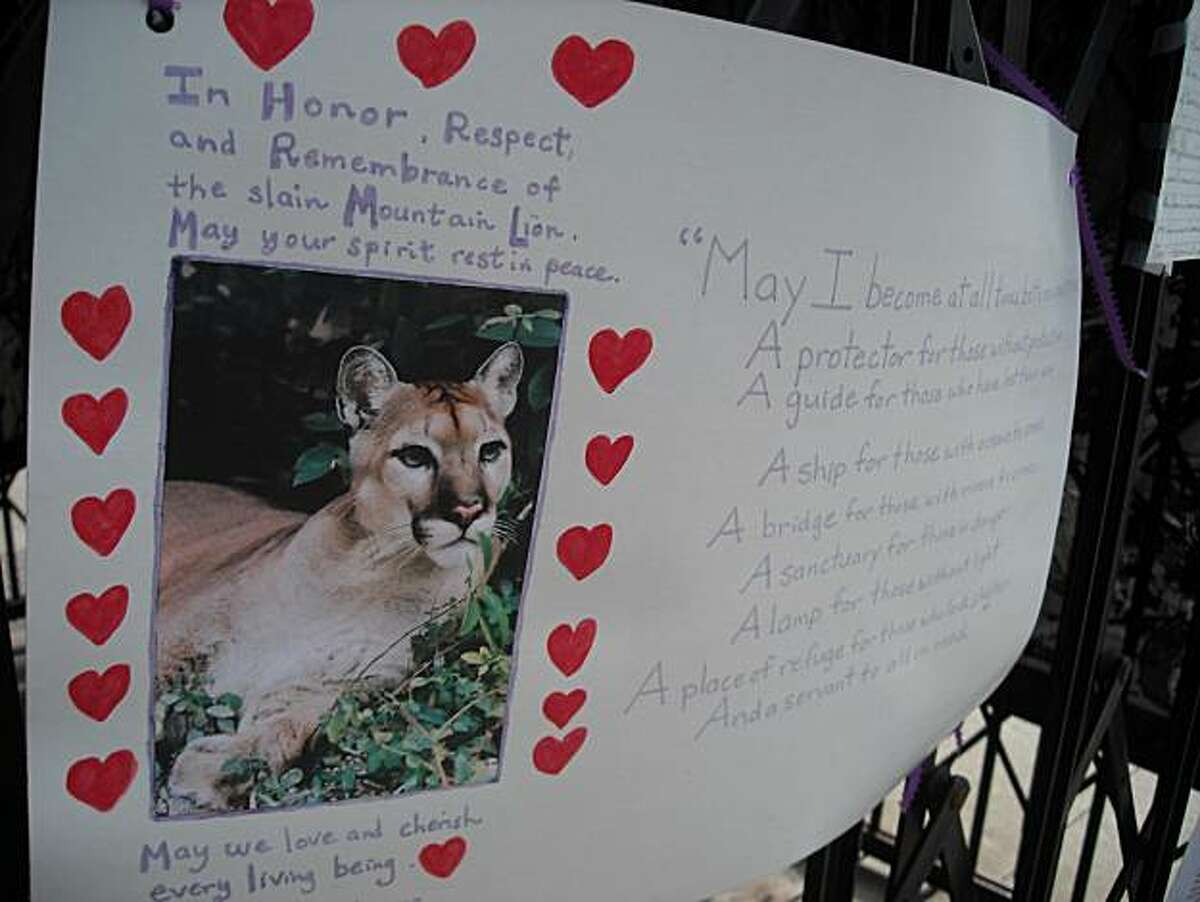 In Honor, Respect,
and Remembrance of
the slain Mountain Lion.
May your spirit rest in peace.
May we love and cherish
every living being.
“May I become at all times
A protector for those without
A guide for those who have
A ship for those with
A bridge for those with
A sanctuary for those in danger
A lamp for those without light
A place of refuge for those who lack shelter
And a servant to all in need.